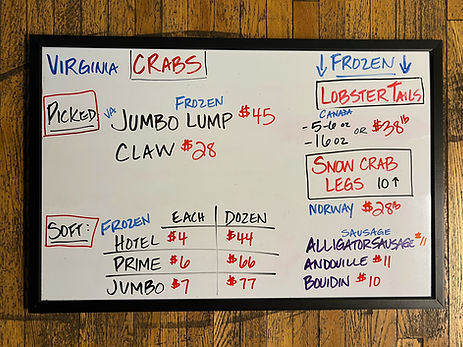 VIRGINIA CRABS
PICKED VA JUMBO LUMP FROZEN $45
CLAW $28
SOFT: FROZEN
EACH DOZEN
HOTEL $4 $44
PRIME $6 $66
JUMBO $7 $77
↓ FROZEN ↓
LOBSTER TAILS
CANADA
-5-6oz OR $38lb
-16oz
SNOW CRAB
LEGS 10↑
NORWAY $28lb
SAUSAGE
ALLIGATOR SAUSAGE $11
ANDOVILLE $11
BOUDIN $10